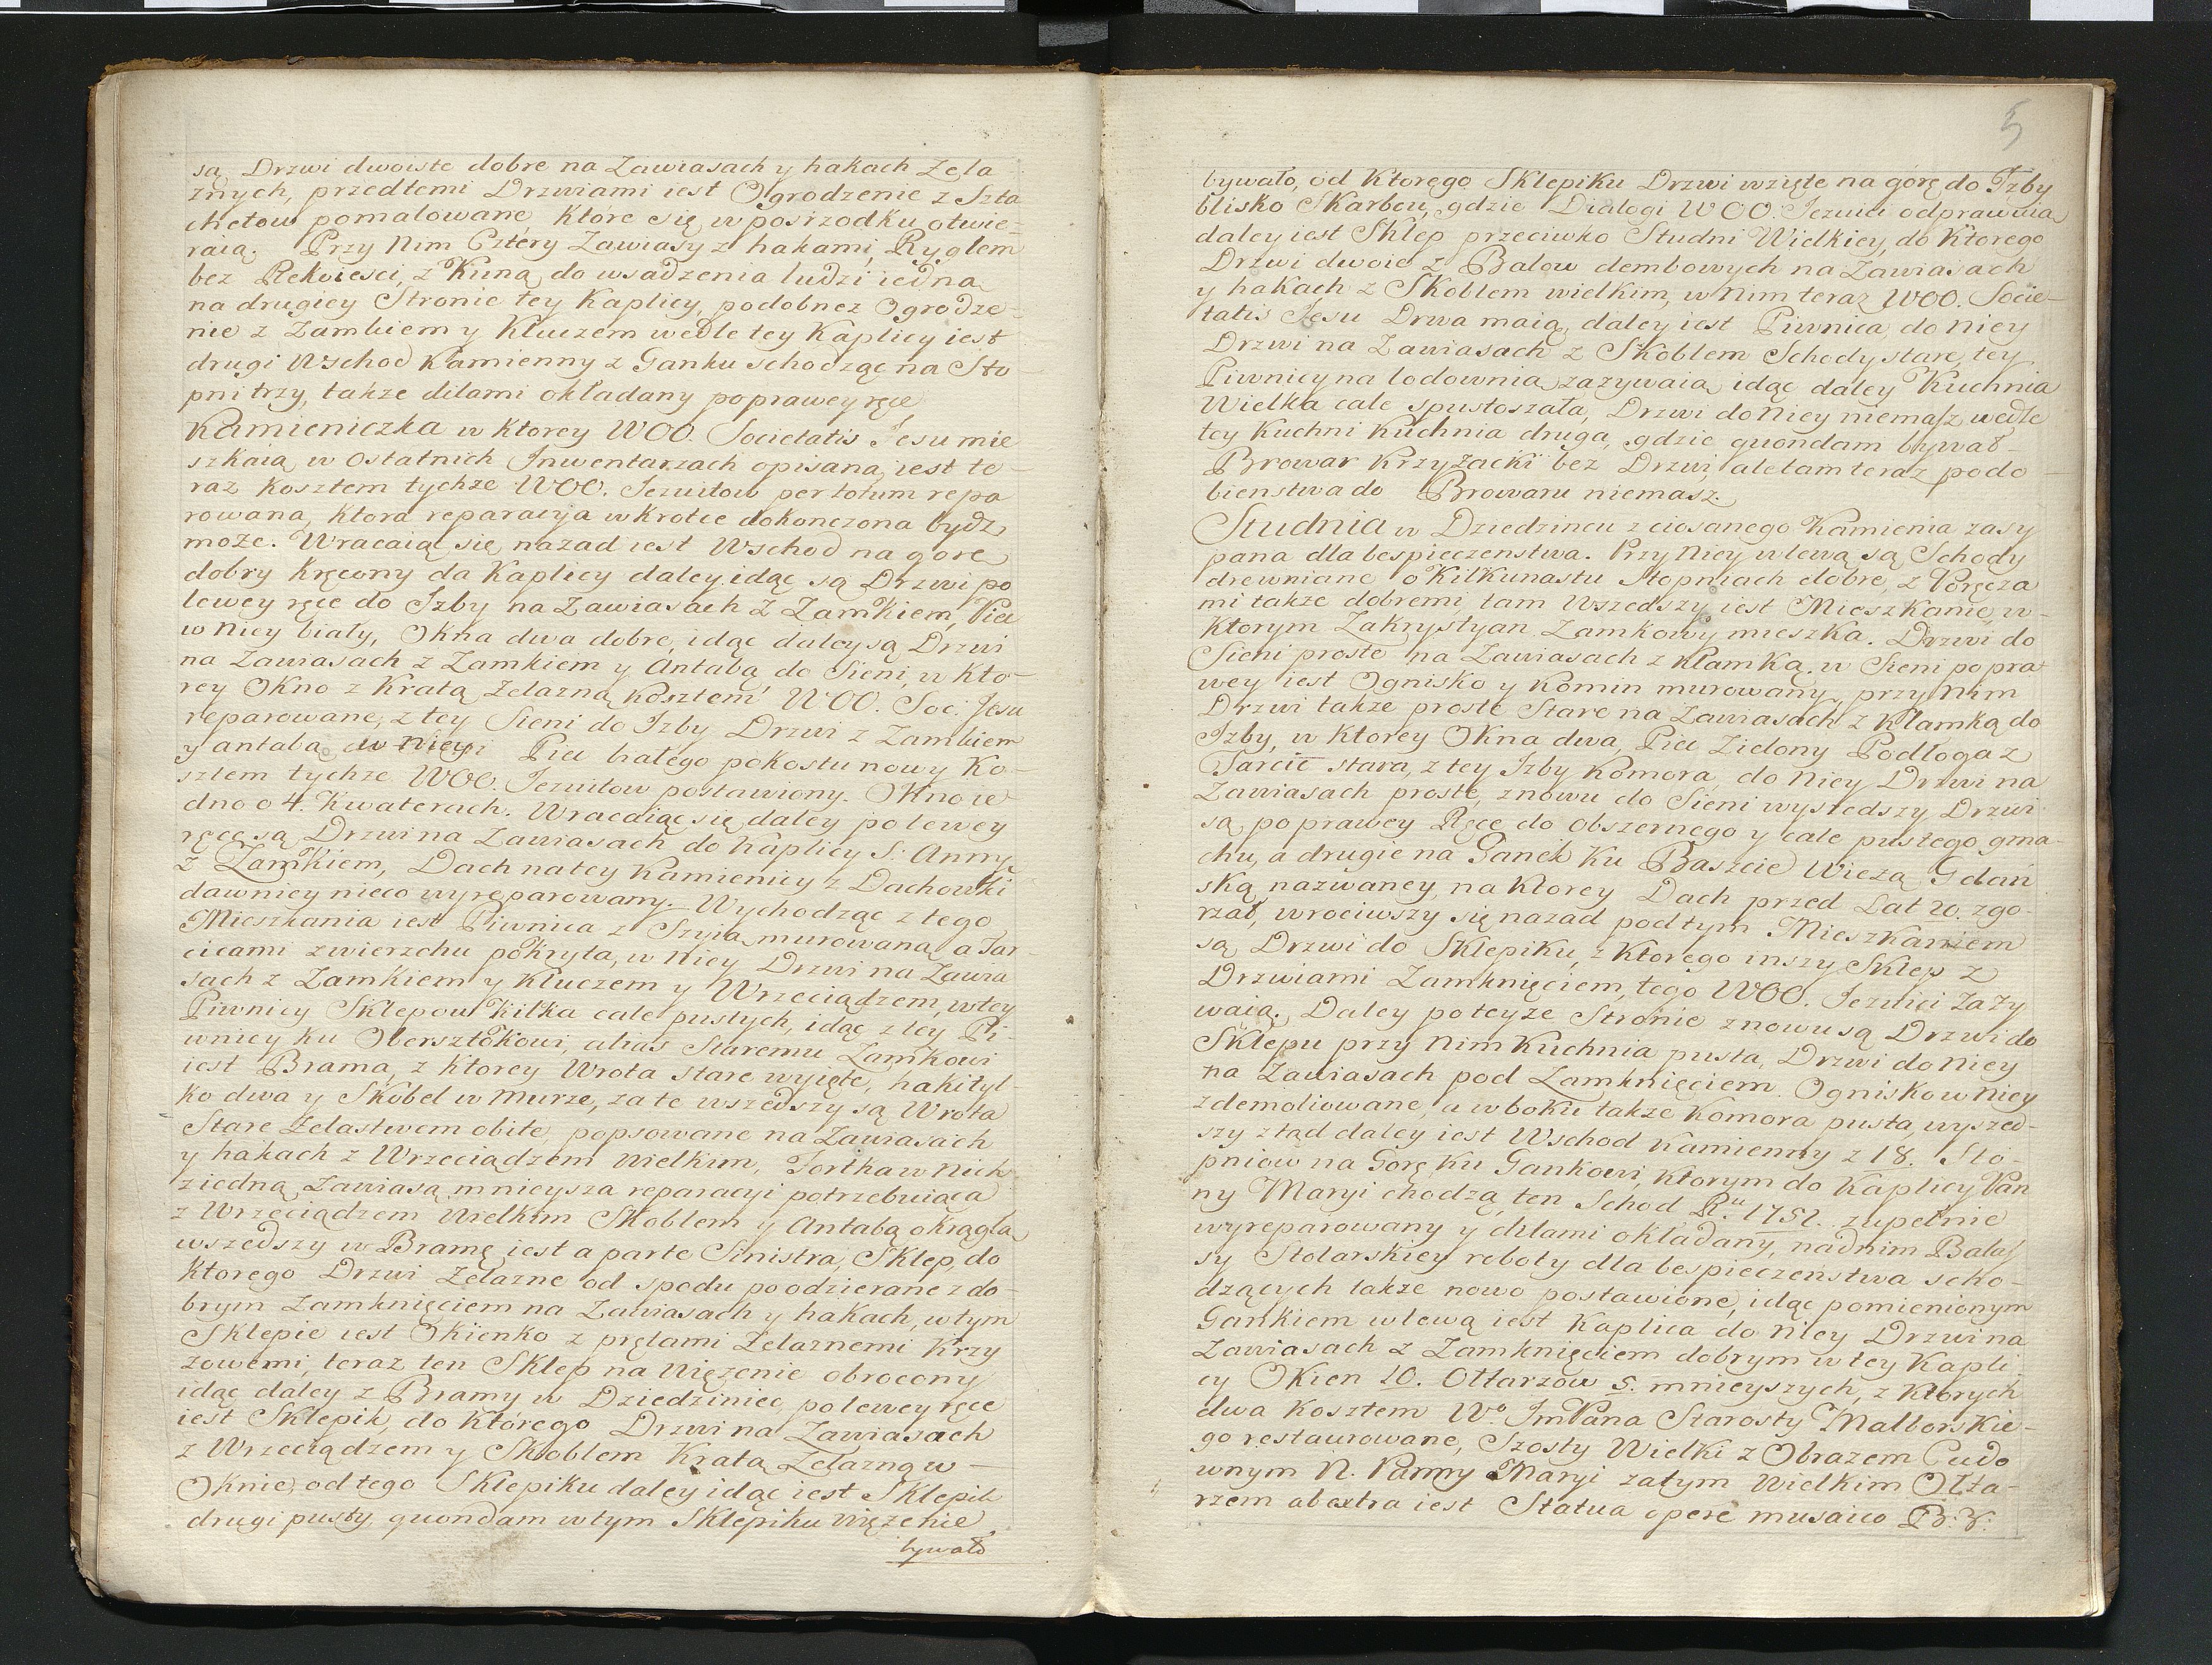 są Drzwi dwoiste dobre na Zawiasach y hakach Zela
znych, przedtemi Drzwiami iest Ogrodzenie z Szta
chetow pomalowane, które się w posrzodku otwie-
raią. Przy Nim Cztéry Zawiasy z hakami, Ryglem
bez Rekoiesci, z Kuną do wsadzenia ludzi iedna
na drugiey Stronie tey Kaplicy, podobnez Ogrodze-
nie z Zamkiem y Kluczem wedle tey Kaplicy iest
drugi Wschod Kamienny z Ganku schodząc na Sto-
pni trzy, takze dilami okładany poprawey ręce
Kamieniczka w Ktorey WOO. Societatis Jesu mie
szkaią w Ostatnich Inwentarzach opisana, iest te-
raz Kosztem tychze WOO. Jezuitow per totum repa
rowana, Ktora reparacyja wkrotce dokonczona bydz
może. Wracaią się nazad iest Wschod na gorę
dobry Kręcony da Kaplicy daley idąc są Drzwi po
lewey ręce do Izby na Zawiasach Z Zamkiem, Piec
w Niey biały, Okna dwa dobre, idąc daley są Drzwi
na Zawiasach z Zamkiem y Antabą do Sieni, w Kto-
rey Okno z Kratą Zelazną Kosztem WOO. Soc. Jesu
reparowane, z tey Sieni do Izby Drzwi z Zamkiem
y antabą w Niey Piec białego pokostu nowy Ko-
sztem tychze WOO. Jezuitow postawiony. Okno ie
dno o 4. Kwaterach. Wracaiąc się daley po lewey
ręce są Drzwi na Zawiasach do Kaplicy S: Anny
z Zamkiem, Dach na tey Kamienicy z Dachowki
dawniey nieco wyreparowany. Wychodząc z tego
Mieszkania iest Piwnica z Szyią murowaną a Tar-
cicami zwierzchu pokryta, w Niey Drzwi na Zawia
sach z Zamkiem y Kluczem y Wrzeciądzem, w tey
Piwnicy Sklepow kilka cale pustych, idąc z tey Pi-
wnicy ku Obersztokowi, alias Staremu Zamkowi
iest Brama, z Ktorey Wrota stare wyięte, haki tyl-
ko dwa y Skobel w Murze, za te wszedszy są Wrota
Stare Zelastwem obite, popsowane na Zawiasach
y hakach z Wrzeciądzem Wielkim, Fortka w Nich
z iedną Zawiasą mnieysza reparacyi potrzebuiąca
z Wrzeciądzem Wielkim Skoblem y Antabą okrągłą
wszedszy w Bramę iest a parte Sinistra, Sklep, do
Ktorego Drzwi Zelazne od spodu poodzierane z do-
brym Zamknięciem na Zawiasach y hakach, w tym
Sklepie iest Okienko z prętami Zelaznemi Krzy
zowemi, teraz ten Sklep na Więzenie obrocony
idąc daley z Bramy w Dziedziniec, po lewey ręce
iest Sklepik, do którego Drzwi na Zawiasach
z Wrzeciądzem y Skoblem Krata Zelazną w -
Oknie, od tego Sklepiku daley idąc iest Sklepik
drugi pusty, quondam w tym Sklepiku Więzenie
bywało
5
bywało, od Ktorego Sklepiku Drzwi wzięte na górę do Izby
blisko Skarbcu, gdzie Dialogi WOO. Jezuici odprawuią
daley iest Sklep przeciwko Studni Wielkiey, do Ktorego
Drzwi dwoie z Balow dembowych na Zawiasach
y hakach z Skoblem wielkim, w Nim teraz WOO. Socie-
tatis Jesu Drwa maią, daley iest Piwnica, do Niey
Drzwi na Zawiasach z Skoblem Schody stare, tey
Piwnicy na lodownią zazywaią, idąc daley Kuchnia
Wielka cale spustoszała, Drzwi do Niey niemasz, wedle
tey Kuchni Kuchnia druga, gdzie quondam bywał -
Browar Krzyzacki bez Drzwi, ale tam teraz podo -
bienstwa do Browaru niemasz.
Studnia w Dziedzincu z ciosanego Kamienia zasy
pana dla bespieczenstwa. Przy Niey w lewą są Schody
drewniane o Kilkunastu Stopniach dobre, z Poręcza
mi także dobremi, tam Wszedszy iest Mieszkanie, w -
Ktorym Zakrystyan Zamkowy mieszka. Drzwi do
Sieni proste na Zawiasach z Klamką, w Sieni po pra-
wey iest Ognisko y Komin murowany, przy nim
Drzwi takze proste Stare na Zawiasach z Klamką do
Izby, w Ktorey Okna dwa, Piec Zielony Podłoga z
Tarcic stara, z tey Izby Komora, do Niey Drzwi na
Zawiasach proste, znowu do Sieni wyszedszy Drzwi
są po prawey Ręce do obszernego y cale pustego gma-
chu, a drugie na Ganek Ku Baszcie Wiezą Gdań
ską nazwaney, na Ktorey Dach przed Lat 20. zgo-
rzał, wrociwszy się nazad pod tym Mieszkaniem
są Drzwi do Sklepiku, z Ktorego inszy Sklep z
Drzwiami Zamknięciem, tego WOO. Jezuici Zazy
waią. Daley po teyze Stronie znowu są Drzwi do
Sklepu przy Nim Kuchnia pusta, Drzwi do Niey
na Zawiasach pod Zamknięciem. Ognisko w Niey
zdemoliowane, a w boku takze Komora pusta, wyszed-
szy z tąd daley iest Wschod Kamienny z 18. Sto-
pniow na Gorę ku Gankowi, Ktorym do Kaplicy Pan
ny Maryi chodzą, ten Schod Ru. 1751. zupełnie
wyreparowany y dilami okładany, nad nim Balas
sy Stolarskiey roboty dla bespieczenstwa scho-
dzących takze nowo postawione, idąc pomienionym
Gankiem w lewą iest Kaplica do Niey Drzwi na
Zawiasach z Zamknięciem dobrym w tey Kapli
cy Okien 10. Ołtarzow 5. mnieyszych, z Ktorych
dwa Kosztem Wo. ImPana Starosty Malborskie-
go restaurowane, Szosty Wielki z Obrazem Cudo
wnym N. Panny Maryi za tym Wielkim Ołta-
rzem ab extra iest Statua opere musaico B. V.